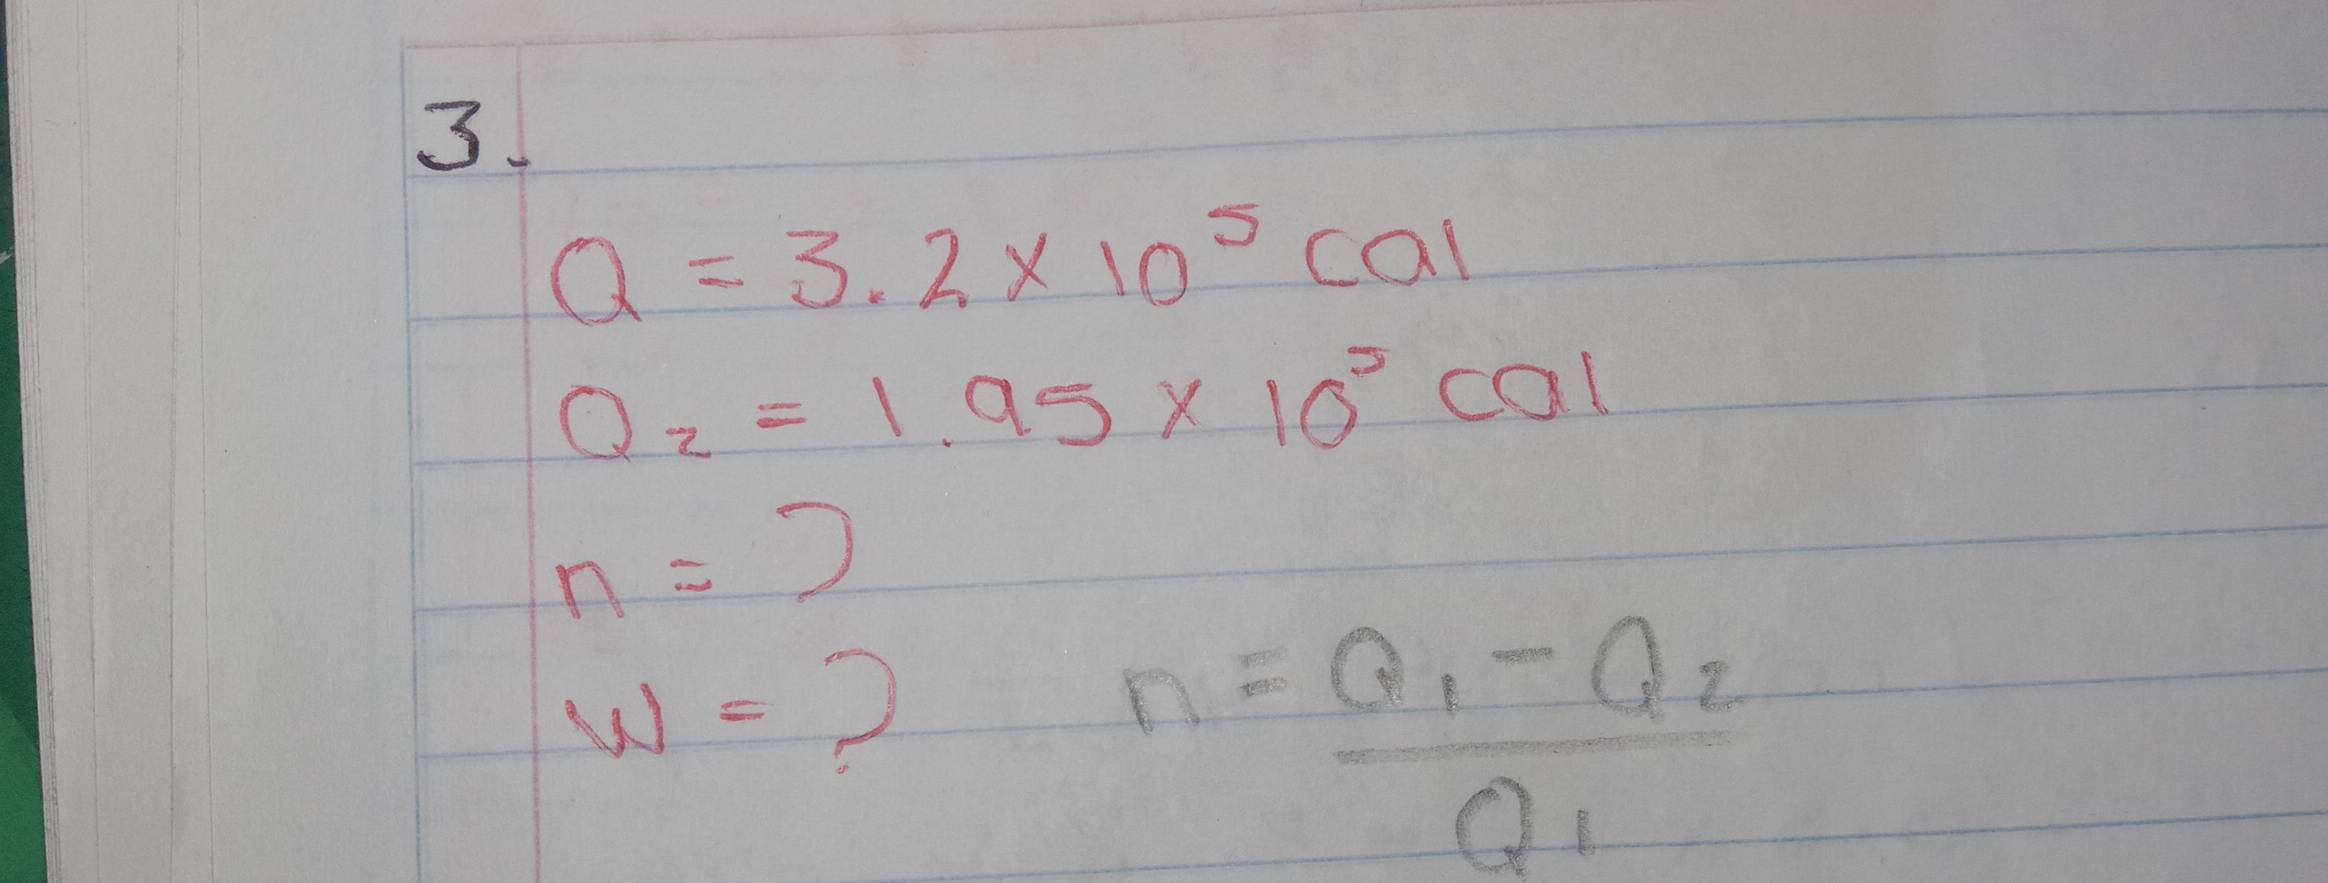 3.
Q = 3.2 x 10⁵ cal
Q₂ = 1.95 x 10⁵ cal
n = ?
W = ?
n = Q₁ - Q₂
Q₁